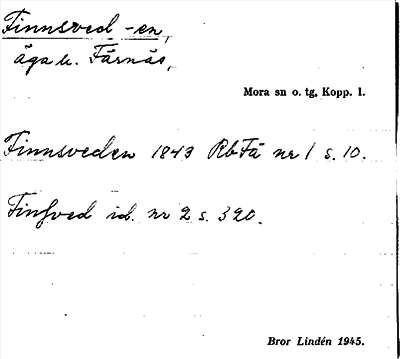 Finnsved -en,
äga u. Färnäs,
Mora sn o. tg, Kopp. l.
Finnsveden 1843 RbFä nr 1 s. 10.
Finsved id. nr 2 s. 320.
Bror Lindén 1945.